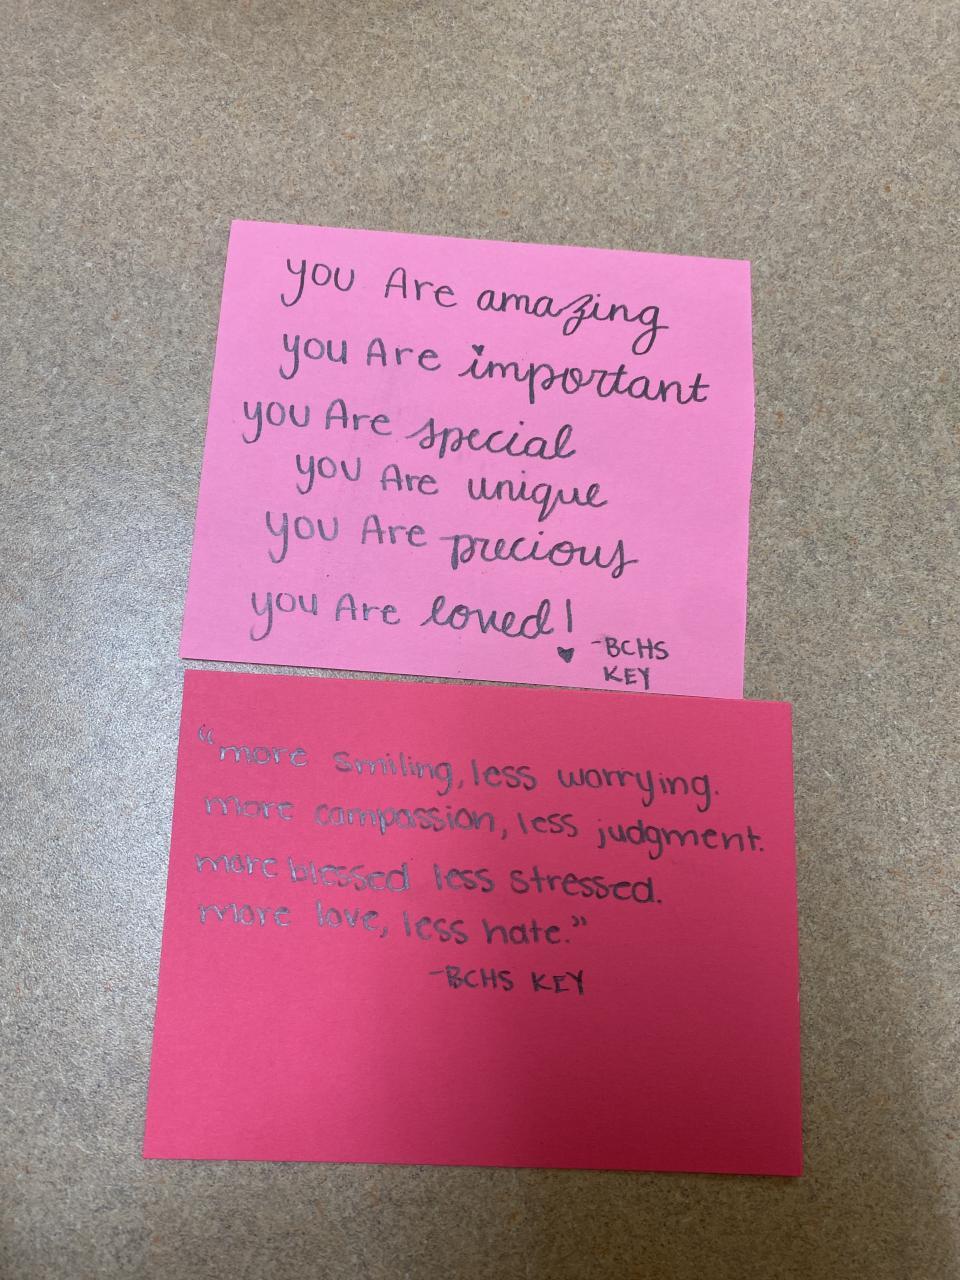 you Are amazing
you Are important
you Are special
you Are unique
you Are precious
you Are loved!
-BCHS
KEY
"more smiling, less worrying.
more compassion, less judgment.
more blessed less stressed.
more love, less hate."
-BCHS KEY